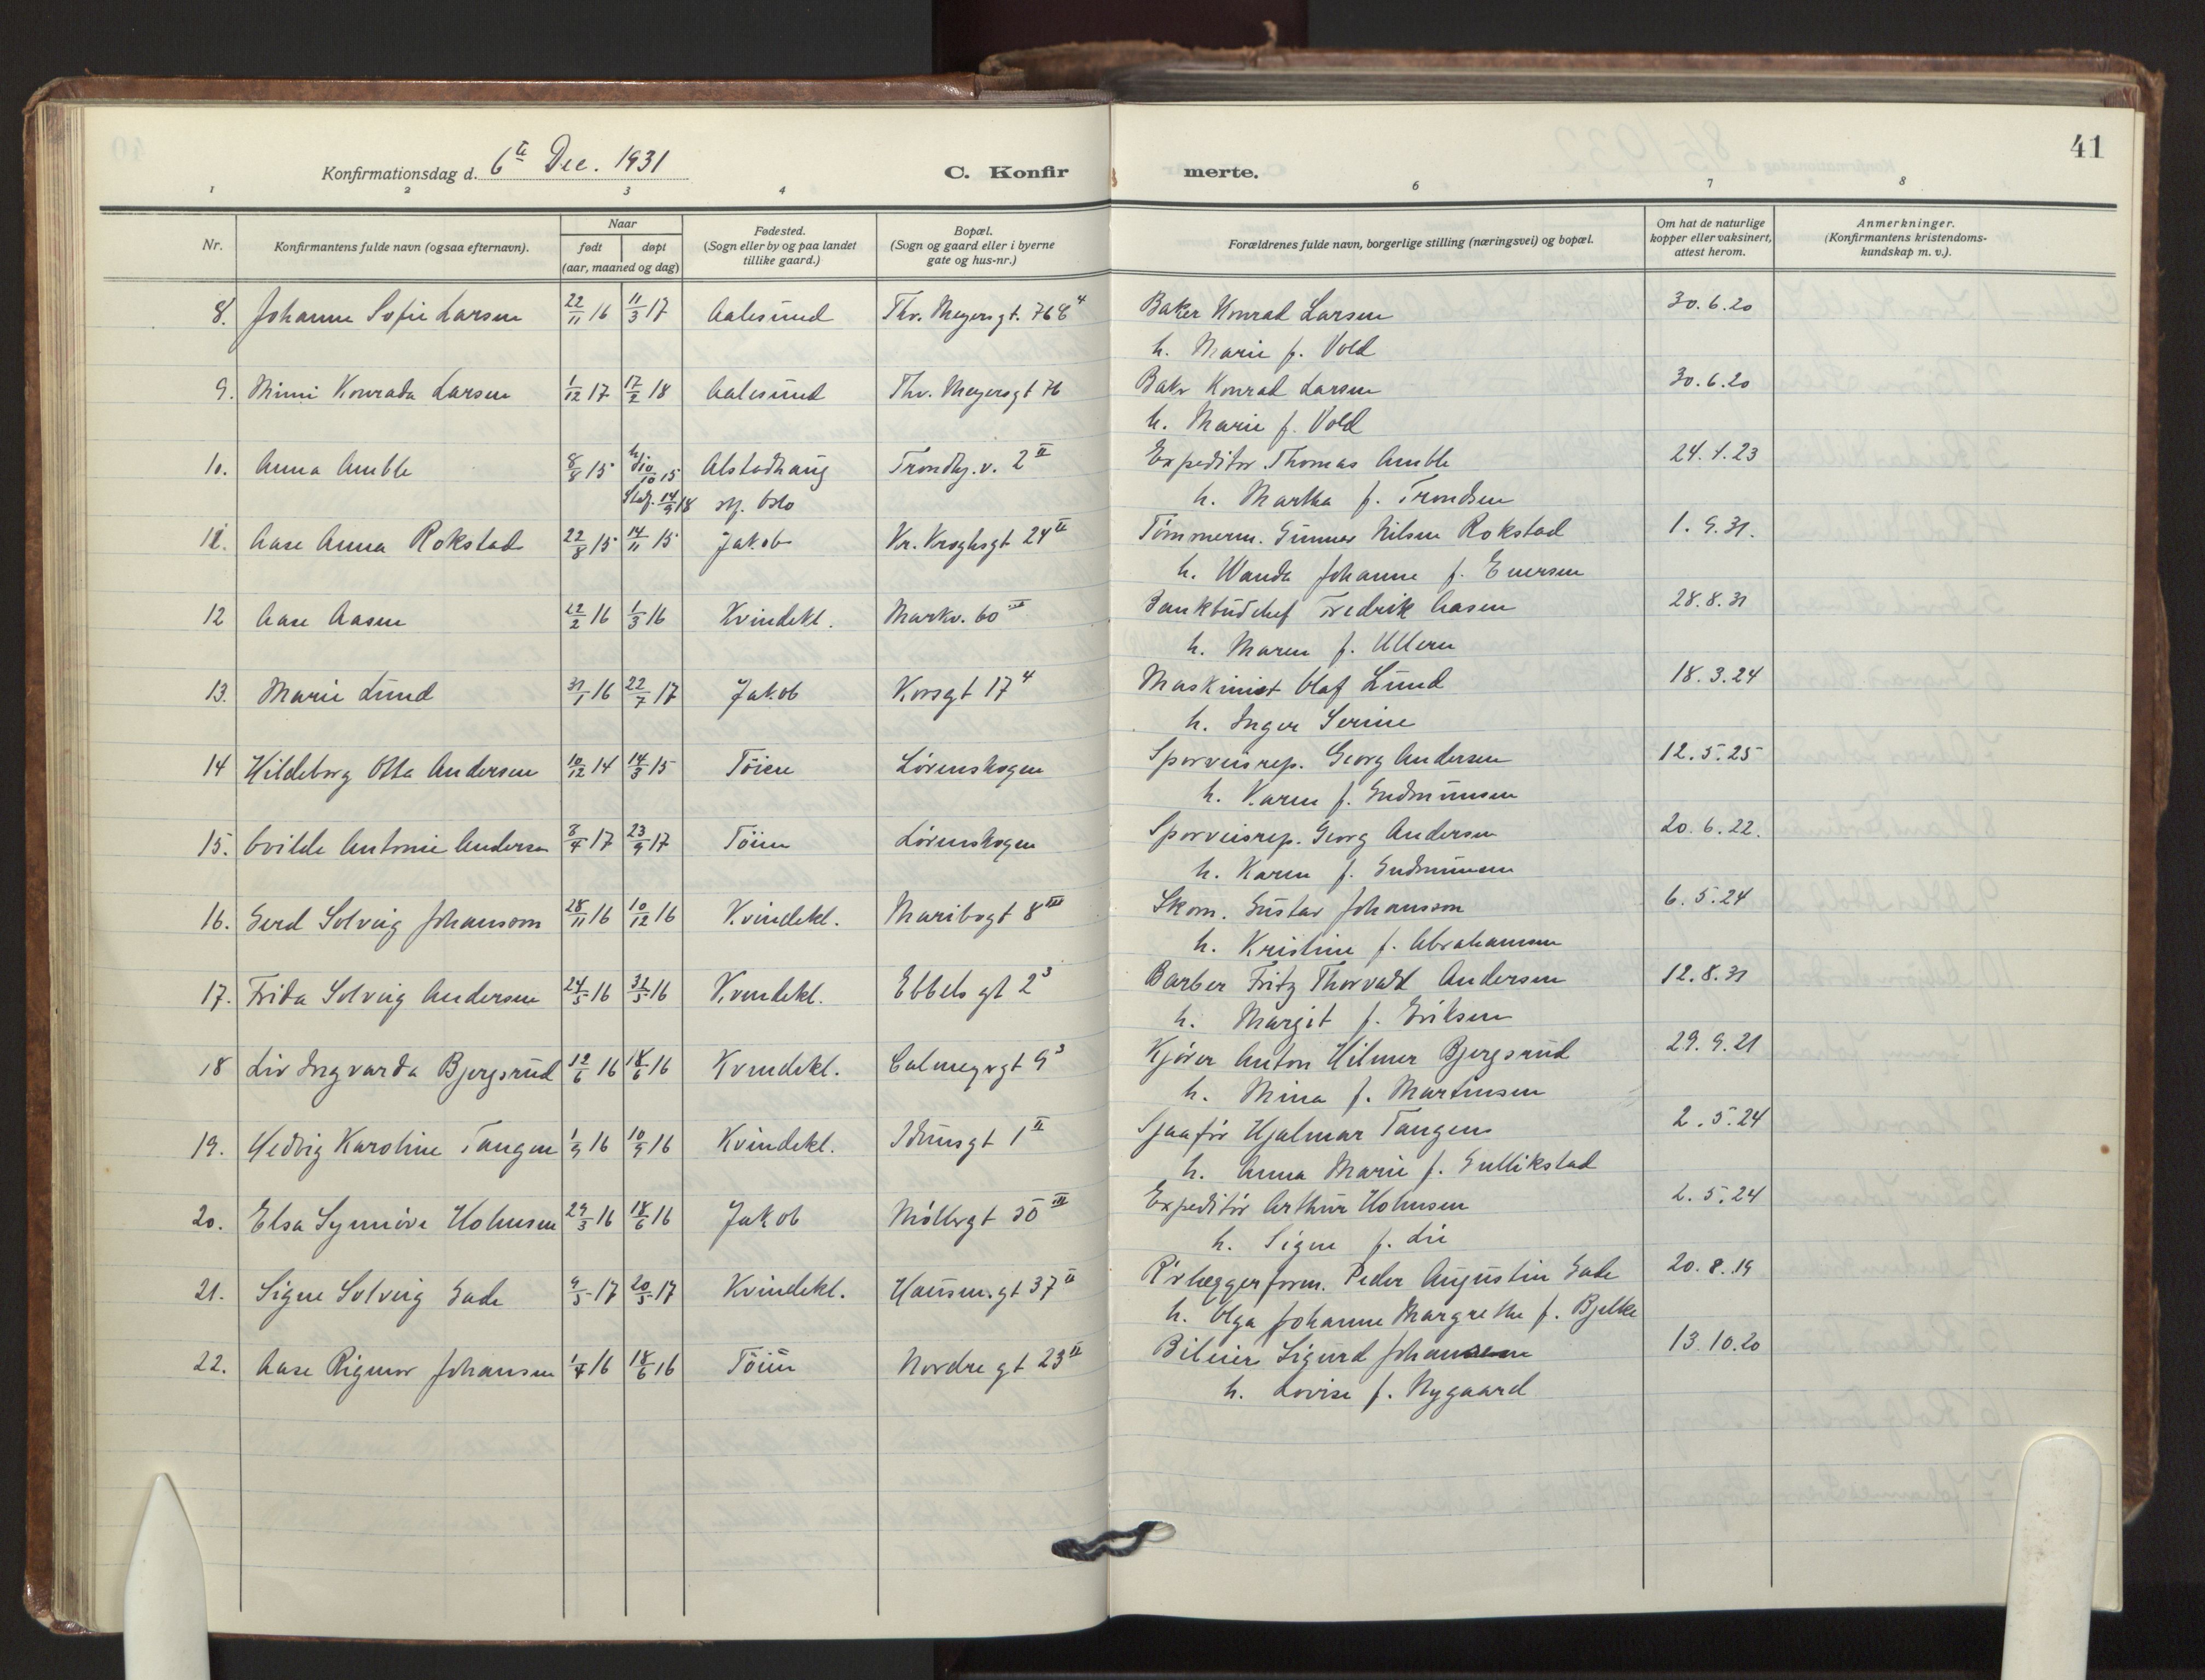 Konfirmationsdag d. 6te Dec. 1931
C. Konfirmerte.
41
1 2 3 4 6 7 8
Nr. Konfirmantens fulde navn (ogsaa efternavn). Naar født døpt (aar, maaned og dag) Fødested. (Sogn eller by og paa landet tillike gaard.) Bopæl. (Sogn og gaard eller i byerne gate og hus-nr.) Forældrenes fulde navn, borgerlige stilling (næringsvei) og bopæl. Om hat de naturlige kopper eller vaksinert, attest herom. Anmerkninger. (Konfirmantens kristendomskundskap m. v.).
8. Johanne Sofie Larsen 22/11 16 11/3 17 Aalesund Thv. Meyersgt. 76 4 Baker Konrad Larsen 30.6.20
h. Marie f. Vold
9. Mimi Konrada Larsen 1/12 17 17/2 18 Aalesund Thv. Meyersgt 76 Baker Konrad Larsen 30.6.20
h. Marie f. Vold
10. Anna Amble 8/8 15 10/10 15 Alstadhaug Trondhj. v. 2 II Expeditør Thomas Amble 24.1.23
14/9 18 Oslo h. Martha f. Trondsen
11. Aase Anna Rokstad 22/8 15 14/11 15 Jakob Kr. Kroghsgt 24 II Tømmerm. Gunnar Nilsen Rokstad 1.9.31.
h. Wanda Johanne f. Enersen
12 Aase Aasen 22/2 16 1/3 16 Kvindekl. Markv. 60 III Bankbudchef Fredrik Aasen 28.8.31
h. Maren f. Ullern
13. Marie Lund 31/1 16 22/7 17 Jakob Korsgt 17 4 Maskinist Olaf Lund 18.3.24
h. Inger Serine
14 Hildeborg Otta Andersen 10/12 14 14/3 15 Tøien Lørenskogen Sporveisrep. Georg Andersen 12.5.25
h. Karen f. Gudmunsen
15. Ovilde Antonie Andersen 8/4 17 23/9 17 Tøien Lørenskogen Sporveisrep. Georg Andersen 20.6.22.
h. Karen f. Gudmunsen
16. Gerd Solveig Johansson 28/11 16 10/12 16 Kvindekl. Maribogt 8 III Skom. Gustav Johansson 6.5.24
h. Kristine f. Abrahamsen
17. Frida Solveig Andersen 24/5 16 31/5 16 Kvindekl. Ebbels gt 2 3 Barber Fritz Thorvald Andersen 12.8.31
h. Margit f. Eriksen
18 Liv Ingvarda Bjergsrud 12/6 16 18/6 16 Kvindekl. Calmeyrgt 9 3 Kjører Anton Hilmer Bjergsrud 29.9.21
h. Mina f. Martinsen
19. Hedvig Karoline Tangen 1/9 16 10/9 16 Kvindekl. Idunsgt 1 II Sjaafør Hjalmar Tangen 2.5.24
h. Anna Marie f. Gullikstad
20. Elsa Synnøve Holmsen 29/3 16 18/6 16 Jakob Møllergt 30 III Expeditør Arthur Holmsen 2.5.24
h. Signe f. Lie
21. Signe Solveig Gade 9/5 17 20/5 17 Kvindekl. Hausm.gt 37 II Rørlæggerform. Peder Augustin Gade 20.8.19
h. Olga Johanne Margrethe f. Bjelke
22. Aase Rigmor Johansen 1/4 16 18/6 16 Tøien Nordre gt 23 II Bileier Sigurd Johansen 13.10.20
h. Lovise f. Nygaard